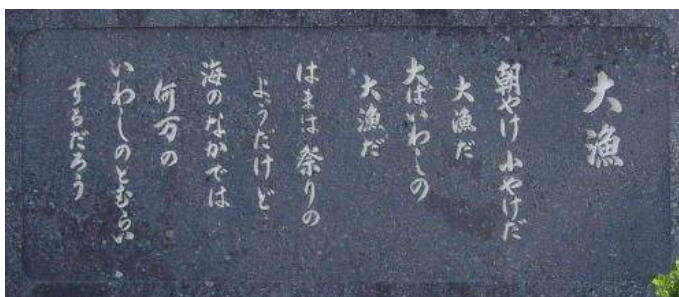 大漁
朝やけ 小やけだ
大漁だ
大ばいわしの
大漁だ
はまは 祭りの
ようだけど
海のなかでは
何万の
いわしのとむらい
するだろう